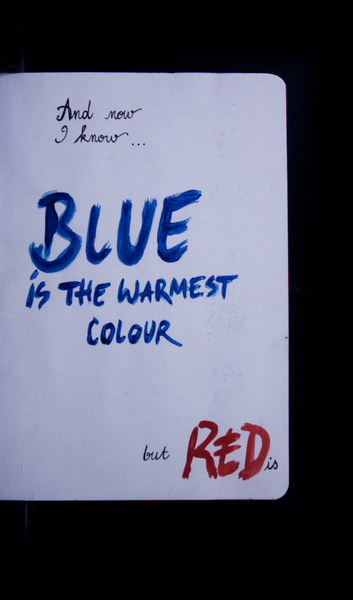 And now
I know...
BLUE
is THE WARMEST
COLOUR
but RED is